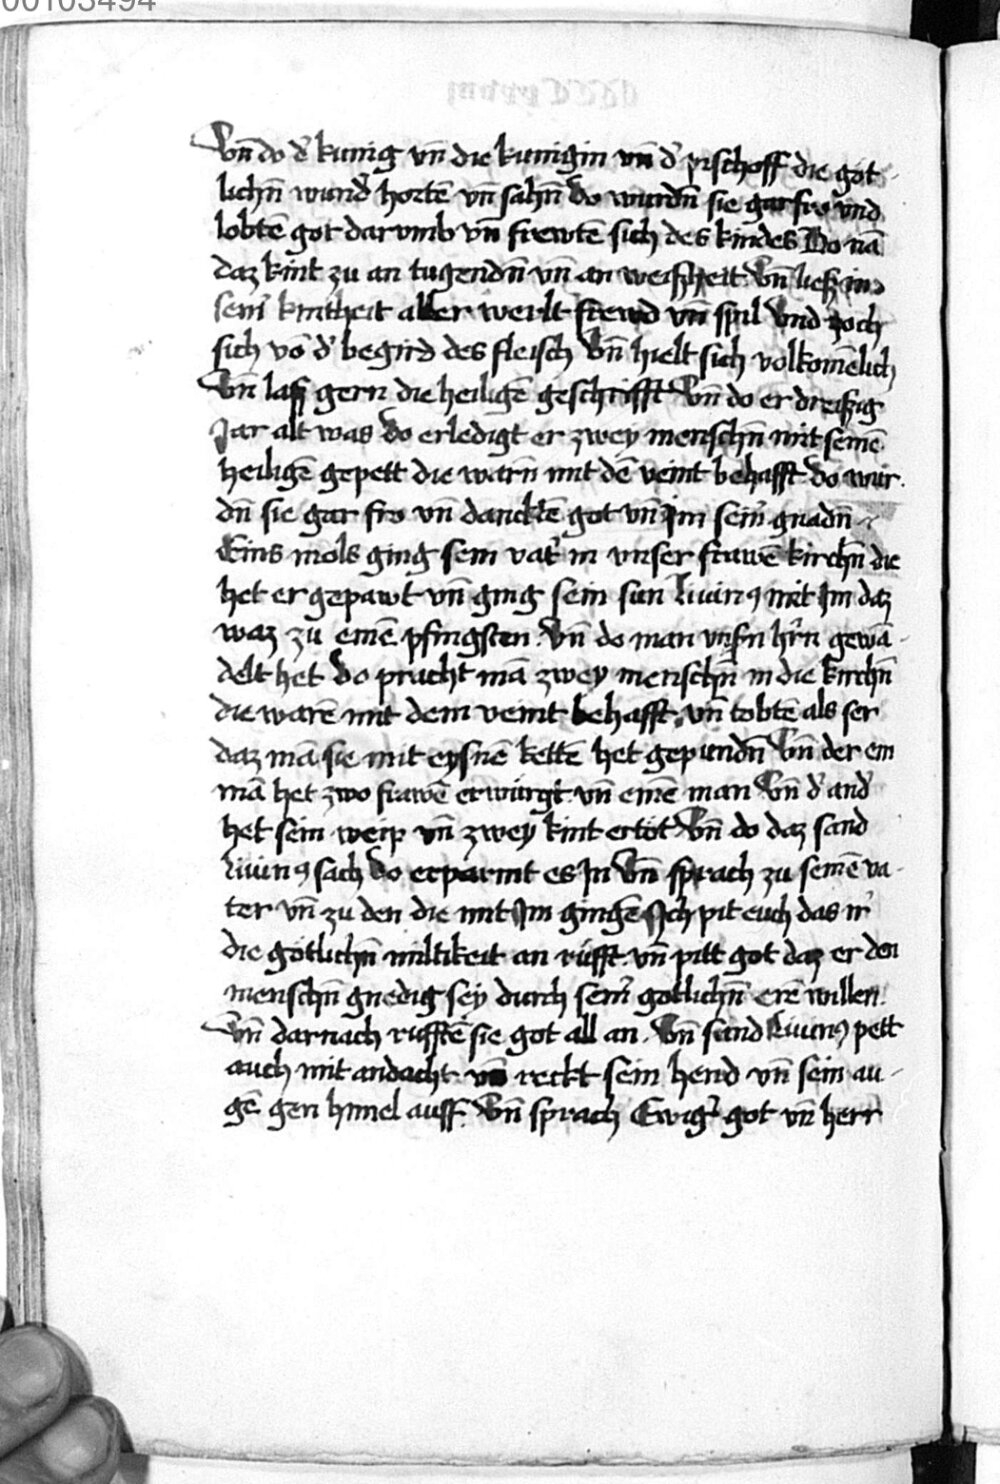 00103494
Vn̄ do d̓ kunig vn̄ die kunigin vn̄ d̓ pischoff die got
lichn̄ wund̓ hortē vn̄ sahn̄ do wurdn̄ sie gar fro vnd
lobtē got dar vmb vn̄ frewtē sich des kindes Do nā
daz kint zu an tugendn̄ vn̄ an weißheit Vn̄ ließ in
sein̓ kintheit aller werlt frewd vn̄ spil Vnd zoch
sich vō d̓ begird des fleisch Vn̄ hielt sich volkomēlich
Vn̄ laß gern die heiligē geschrifft Vn̄ do er dreißig
Jar alt was do erledigt er zwey menschn̄ mit seinē
heiligē gepett die warn̄ mit dē veint behafft do wur
dn̄ sie gar fro vn̄ dancktē got vn̄ Im sein̓ gnadn̄
Eins mols ging sein vat̓ in vnser frawē kirchn̄ die
het er gepawt vn̄ ging sein sun Liuinꝰ mit Im daz
waz zu einē pfingsten Vn̄ do man vnsn̄ hr̄n gewā-
delt het do pracht mā zwey menschn̄ in die kirchn̄
die warē mit dem veint behafft vn̄ tobtē als ser
daz mā sie mit eysnē kettē het gepundn̄ Vn̄ der ein
mā het zwo frawē erwurgt vn̄ einē man Vn̄ d̓ and̓
het sein weip vn̄ zwey kint ertöt Vn̄ do daz sand
Liuinꝰ sach do erparmt es In Vn̄ sprach zu seinē va-
ter vn̄ zu den die mit Im gingē Ich pit euch das ir̓
die gotlichn̄ miltikeit an rüfft vn̄ pitt got daz er den
menschn̄ gnedig sey durch sein̓ gotlichn̄ erē willen
Vn̄ darnach rufftē sie got all an Vn̄ sand Liuinꝰ pett
auch mit andacht vn̄ reckt sein hend vn̄ sein au-
gē gen himel auff Vn̄ sprach Ewig̓ got vn̄ herr